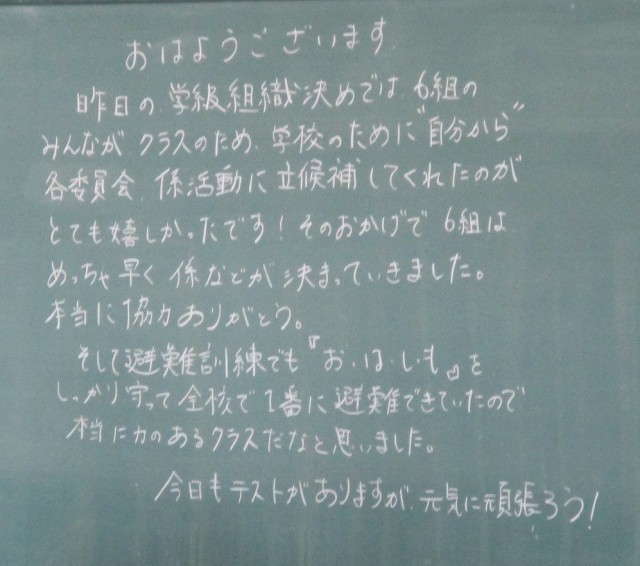 おはようございます
昨日の学級組織決めでは6組の
みんなが クラスのため、学校のために"自分から"
各委員会、係活動に立候補してくれたのが
とても嬉しかったです！そのおかげで 6組は
めっちゃ早く係などが決まっていきました。
本当に協力ありがとう。
そして避難訓練でも『お・は・し・も』を
しっかり守って全校で1番に避難できていたので
本当に力のあるクラスだなと思いました。
今日もテストがありますが、元気に頑張ろう！